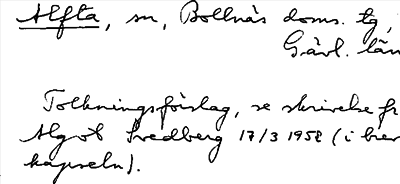 Alfta, sn, Bollnäs doms. tg,
Gävl. län
Tolkningsförslag, se skrivelse fr
Algot Svedberg 17/3 1952 (i brev
kapseln).